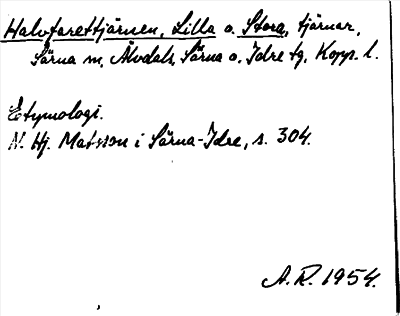 Halvfarettjärnen, Lilla o. Stora, tjärnar,
Särna sn, Älvdals, Särna o. Idre tg, Kopp. l.
Etymologi.
N. Hj. Matsson i Särna-Idre, s. 304.
A. R. 1954.